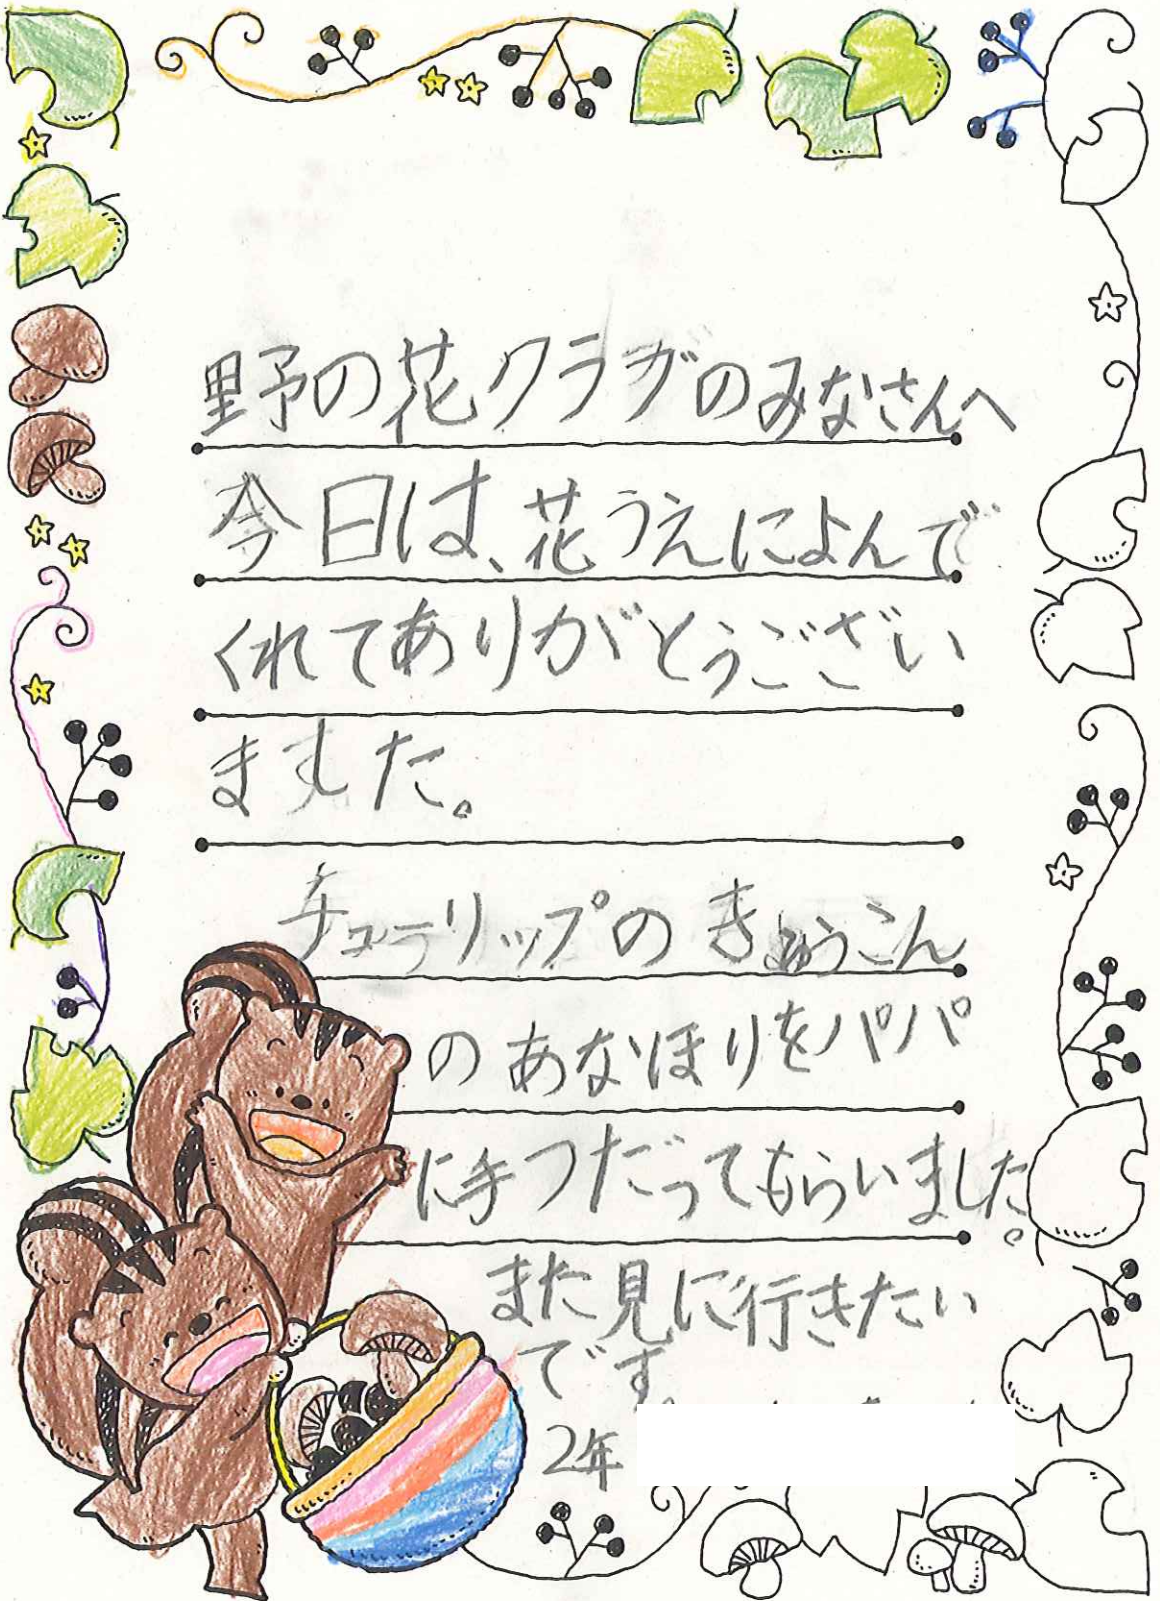 野の花クラブのみなさんへ
今日は、花うえによんで
くれてありがとうござい
ました。
チューリップのきゅうこん
のあなほりをパパ
に手つだってもらいました。
また見に行きたい
です。
2年